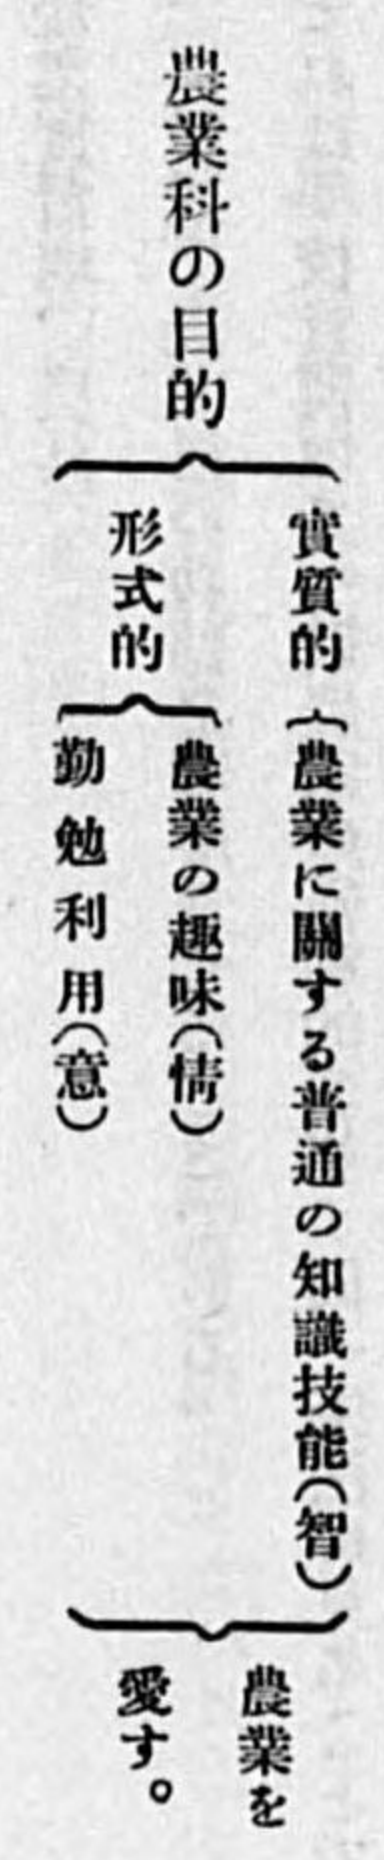 農業科の目的
實質的
農業に關する普通の知識技能(智)
形式的
農業の趣味(情)
勤勉利用(意)
農業を
愛す。